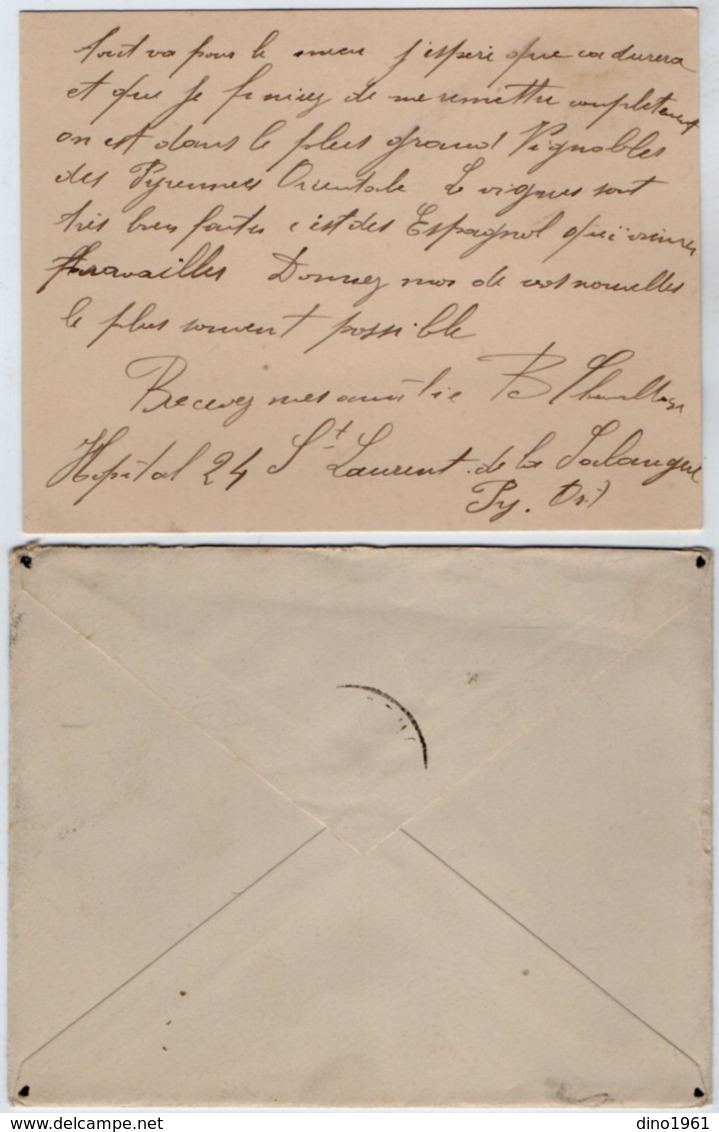 tout va pour le mieu j'espère que ca durera
et que je finirez de me remettre completement
on est dans le plus grand Vignobles
des Pyrennees Orientale Le vignes sont
très bien faites c'est des Espagnol qui
travailles Donnez moi de vos nouvelles
le plus souvent possible
Recevez mes amitie B
Hopital 24 St Laurent de la Salanque
Py. Or)
dino1961